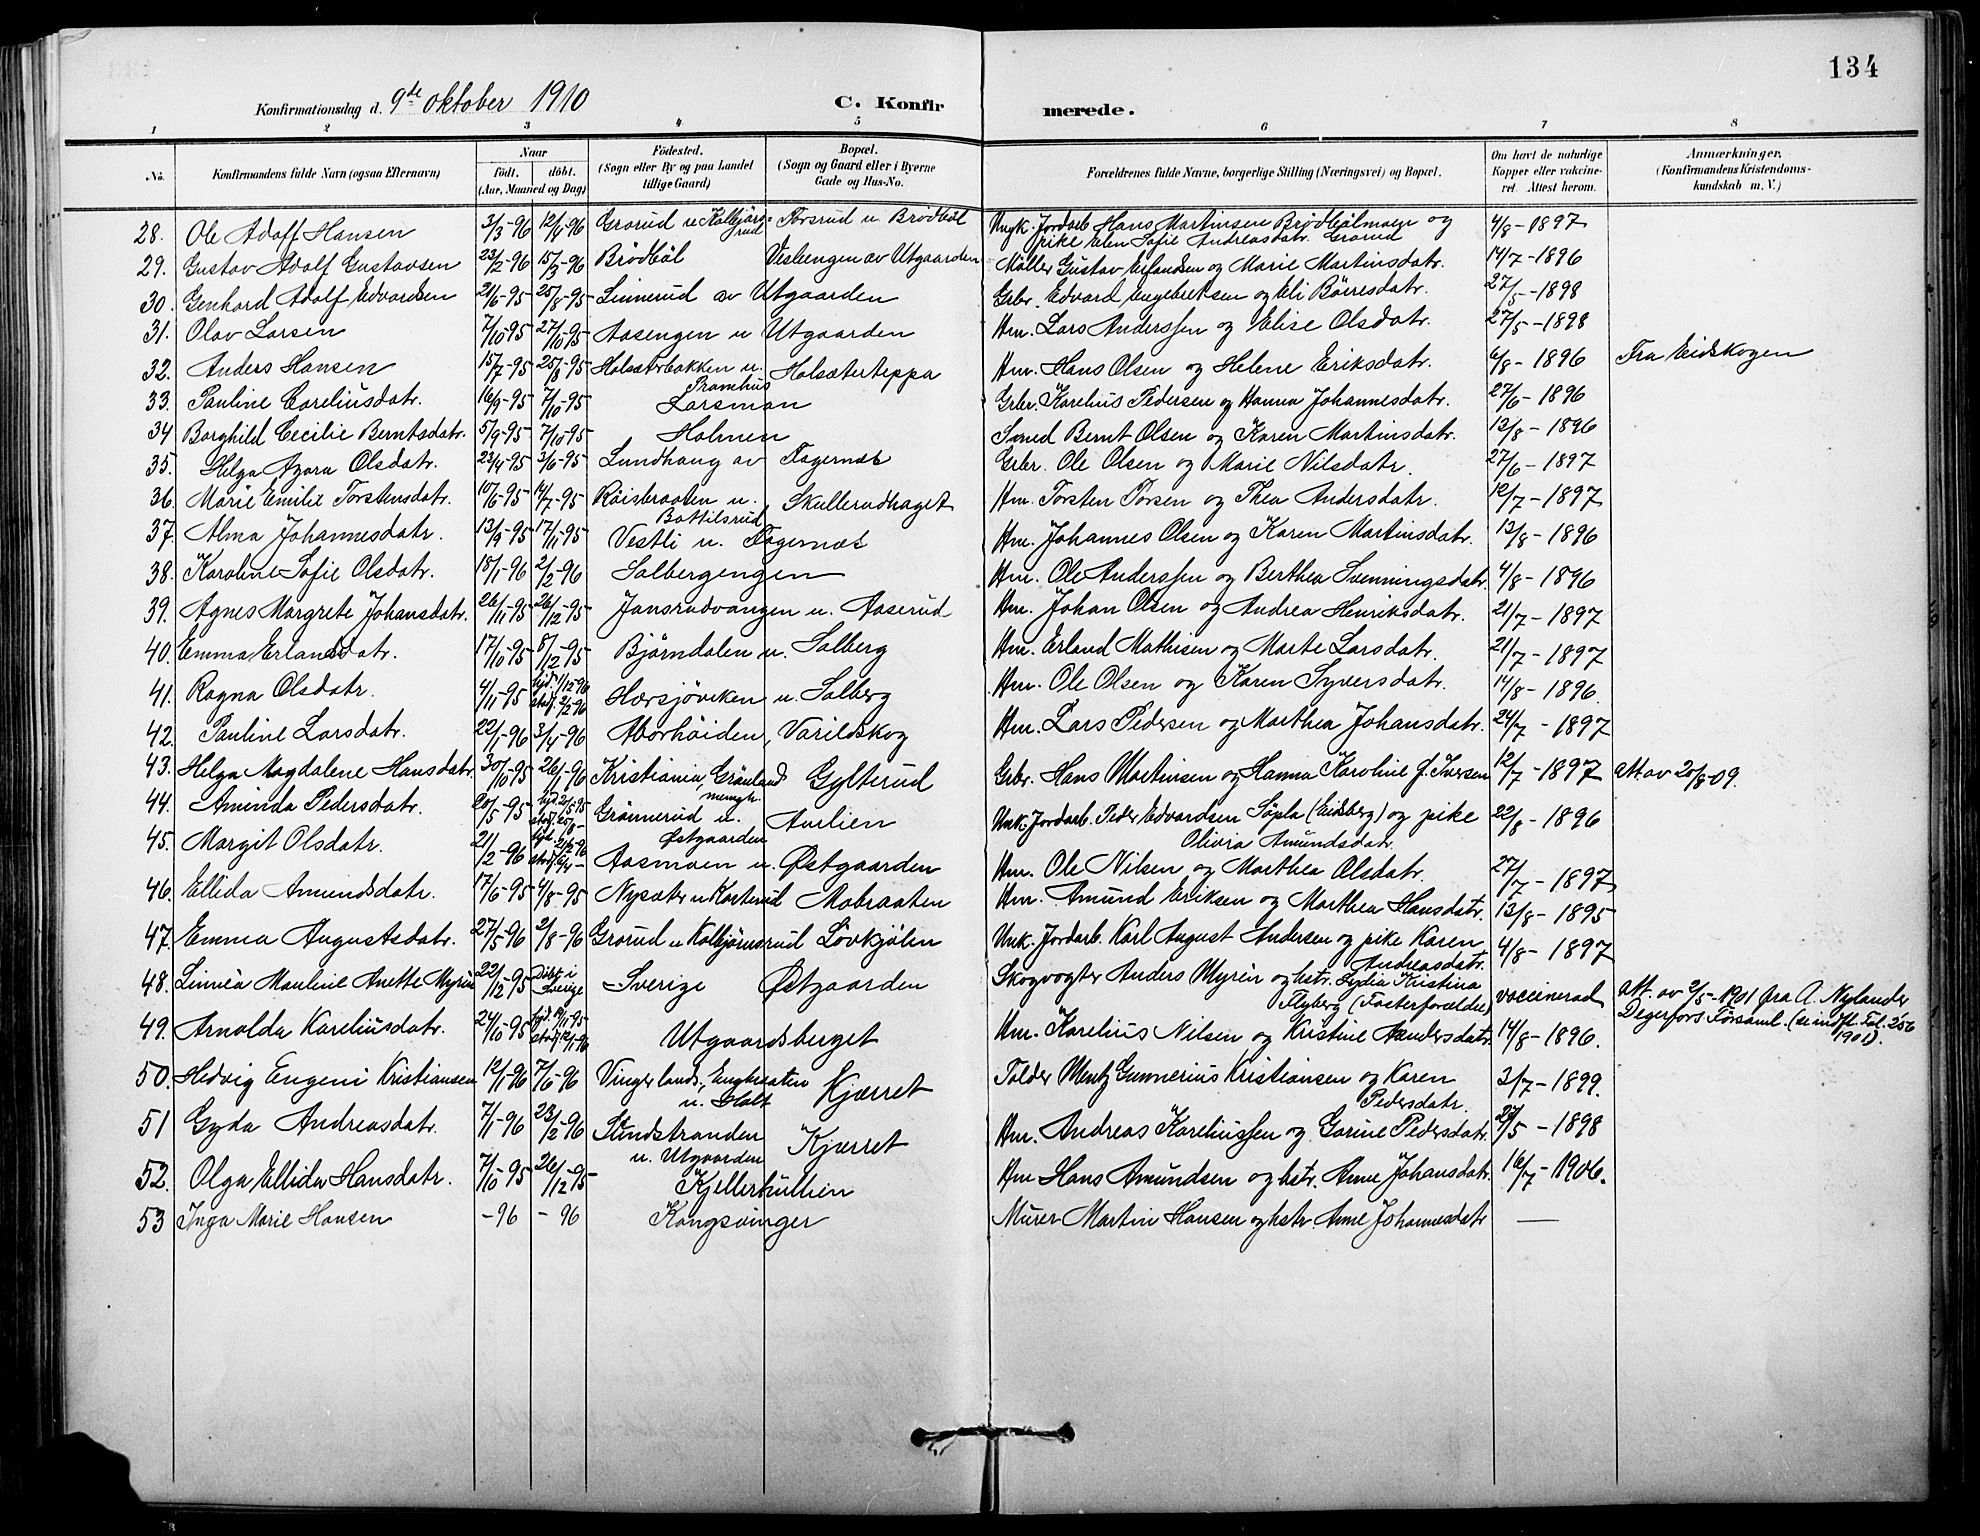 134
Konfirmationsdag d. 9de oktober 1910 C. Konfir merede.
1 2 3 4 5 6 7 8
No. Konfirmandens fulde Navn (ogsaa Efternavn) Naar født. døbt. (Aar, Maaned og Dag) Fødested. (Sogn eller By og paa Landet tillige Gaard) Bopæl. (Sogn og Gaard eller i Byerne Gade og Hus-No. Forældrenes fulde Navne, borgerlige Stilling (Næringsvei) og Bopæl. Om havt de naturlige Kopper eller vaccineret. Attest herom. Anmærkninger. (Konfirmandens Kristendomskundskab m. V.)
28. Ole Adolf Hansen 3/3-96 12/4-96 Grorud u Kolbjörnsrud Forsrud u Brödböl Ungk. Jordarb Hans Martinsen Brödbölmoen og pike Elen Sofie Andreasdatr. Grorud 4/8-1897
29. Gustav Adolf Gustavsen 23/2-96 15/3-96 Brödböl Veslengen av Utgaarden Möller Gustav Erlandsen og Marie Martinsdatr. 14/7-1896
30. Genhard Adolf Edvardsen 21/6-95 25/8-95 Linnerud av Utgaarden Grbr. Edvard Engebretsen og Eli Börresdatr. 27/5-1898
31. Olav Larsen 7/10-95 27/10-95 Aasengen u Utgaarden Hm. Lars Anderssen og Elise Olsdatr. 27/5-1898
32. Anders Hansen 15/7-95 25/8-95 Holsæterbakken u. Pramhus Holsæterteppa Hm. Hans Olsen og Helene Eriksdatr. 6/8-1896 Fra Eidskogen
33. Pauline Careliusdatr. 16/9-95 7/10-95 Larsmon Grbr. Karelius Pedersen og Hanna Johannesdatr. 27/6-1896
34 Borghild Cecilie Berntsdatr. 5/9-95 7/10-95 Holmen Smed Bernt Olsen og Karen Martinsdatr. 13/8-1896
35. Helga Azora Olsdatr. 23/4-95 3/6-95 Lundhaug av Fagernæs Grbr. Ole Olsen og Marie Nilsdatr. 27/6-1897
36. Marie Emilie Torstensdatr. 10/6-95 14/7-95 Röisbraaten u. Bottilsrud Skullerudhaget Hm. Torsten Torsen og Thea Andersdatr. 12/7-1897
37. Alma Johannesdatr. 13/9-95 17/11-95 Vestli u. Fagernæs Hm. Johannes Olsen og Karen Martinsdatr. 13/8-1896
38. Karoline Sofie Olsdatr. 18/1-96 2/2-96 Solbergengen Hm. Ole Anderssen og Berthea Svenningsdatr 4/8-1896
39. Agnes Margrete Johansdatr. 26/11-95 26/12-95 Jansrudvangen u. Aaserud Hm. Johan Olsen og Andrea Henriksdatr. 21/7-1897
40. Emma Erlandsdatr. 17/10-95 8/12-95 Björndalen u. Solberg Hm. Erland Mathisen og Marte Larsdatr. 21/7-1897
41. Ragna Olsdatr. 4/11-95 Hærsjöviken u. Solberg Hm. Ole Olsen og Karen Syversdatr. 14/8-1896
42. Pauline Larsdatr. 22/1-96 3/4-96 Aborhöiden, Varildskog Hm. Lars Pedersen og Marthea Johansdatr. 24/7-1897
43. Helga Magdalene Hansdatr 30/10-95 26/1-96 Kristiania, Grönland mengh. Gylterud Grbr. Hans Martinsen og Hanna Karoline f. Iversen 12/7-1897 att av 20/8-09.
44. Aminda Pedersdatr. 20/5-95 Grönnerud u. Østgaarden Aurlien Unk. Jordarb. Peder Edvardsen Söpla (Eidsberg) og pike Olivia Amundsdatr. 22/8-1896
45. Margit Olsdatr. 21/2-96 Aasmoen u. Østgaarden Hm. Ole Nilsen og Marthea Olsdatr. 27/7-1897
46. Ellida Amundsdatr. 17/6-95 4/8-95 Nysæter u Korterud Mobraaten Hm. Amund Eriksen og Marthea Hansdatr. 13/8-1895
47. Emma Augustsdatr. 27/5-96 2/8-96 Grorud u Kolbjörnsrud Lövkjölen Unk. Jordarb. Karl August Andersen og pike Karen Andreasdatr. 4/8-1897
48. Linnéa Mauline Anette Myrén 22/12-95 Döbt i Sverige Sverige Østgaarden Skogvogter Anders Myrén og hstr. Lydia Kristina Flyberg (Fosterforældre) vaccinerad att. av 2/5-1901 fra A. Nylander Degerfors Församl. (se indfl. Fol. 256 1901).
49. Arnolda Kareliusdatr. 24/10-95 Utgaardsberget Hm. Karelius Nilsen og Kristine Andersdatr. 14/8-1896.
50. Hedvig Engeni Kristiansen 12/1-96 7/6-96 Vinger lands., Engbraaten u. Holt Kjærret Tolder Mentz Gunnerius Kristiansen og Karen Pedersdatr. 3/7-1899.
51 Gyda Andreasdatr. 7/1-96 23/2-96 Stendstranden u. Utgaarden Kjærret Hm. Andreas Kareliussen og Gorine Pedersdatr. 27/5-1898
52. Olga Ellida Hansdatr. 7/10-95 26/12-95 Kjellerhullien Hm Hans Amundsen og hstr. Anne Johansdatr. 16/7-1906.
53 Inga Marie Hansen -96 -96 Kongsvinger Murer Martin Hansen og hstr Anne Johannesdatr —